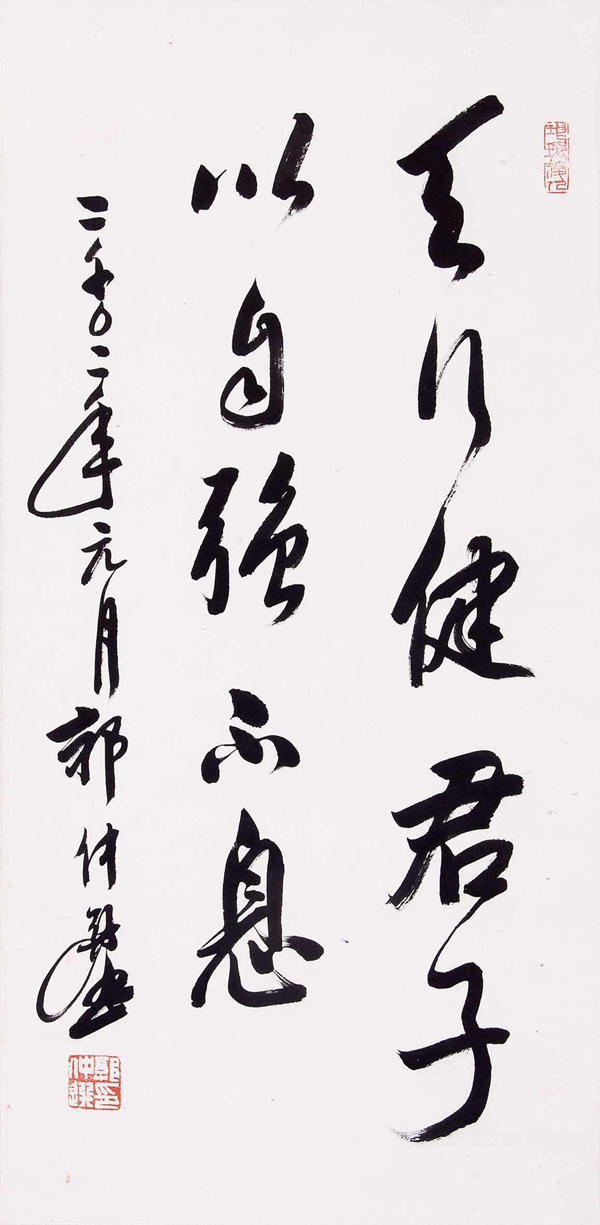 天行健君子
以自强不息
二千〇二年元月郭仲選
郭印仲選